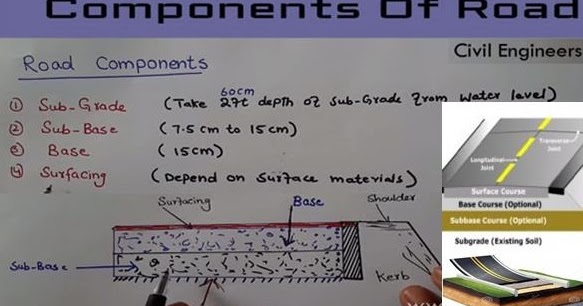 Components Of Road
Civil Engineers
Road Components
① Sub-Grade (Take 2ft depth of Sub-Grade from water level)
60cm
② Sub-Base (7.5 cm to 15 cm)
③ Base (15 cm)
④ Surfacing (Depend on Surface materials)
Surfacing
Base
Shoulder
Sub-Base
Kerb
Transverse Joint
Longitudinal Joint
Surface Course
Base Course (Optional)
Subbase Course (Optional)
Subgrade (Existing Soil)